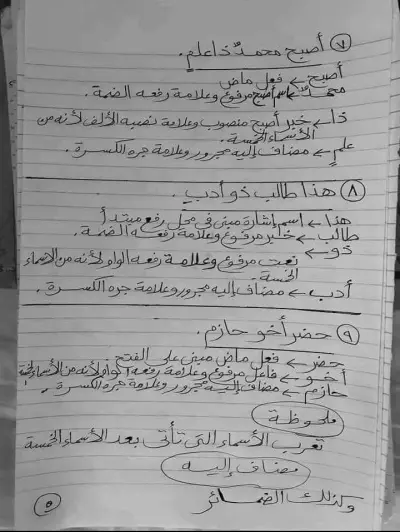 ٧ أصبح محمدٌ ذا علم.
أصبح ← فعل ماض
محمدٌ ← اسم أصبح مرفوع وعلامة رفعه الضمة.
ذا ← خبر أصبح منصوب وعلامة نصبه الألف لأنه من
الأسماء الخمسة.
علمٍ ← مضاف إليه مجرور وعلامة جره الكسرة.
٨ هذا طالب ذو أدب.
هذا ← اسم إشارة مبنى فى محل رفع مبتدأ
طالب ← خبر مرفوع وعلامة رفعه الضمة.
ذو ← نعت مرفوع وعلامة رفعه الواو لأنه من الأسماء
الخمسة.
أدب ← مضاف إليه مجرور وعلامة جره الكسرة.
٩ حضر أخو حازم.
حضر ← فعل ماض مبنى على الفتح
أخو ← فاعل مرفوع وعلامة رفعه الواو لأنه من الأسماء الخمسة
حازم ← مضاف إليه مجرور وعلامة جره الكسرة.
ملحوظة
تعرب الأسماء التى تأتى بعد الأسماء الخمسة
مضاف إليه
وكذلك الضمائر
٥